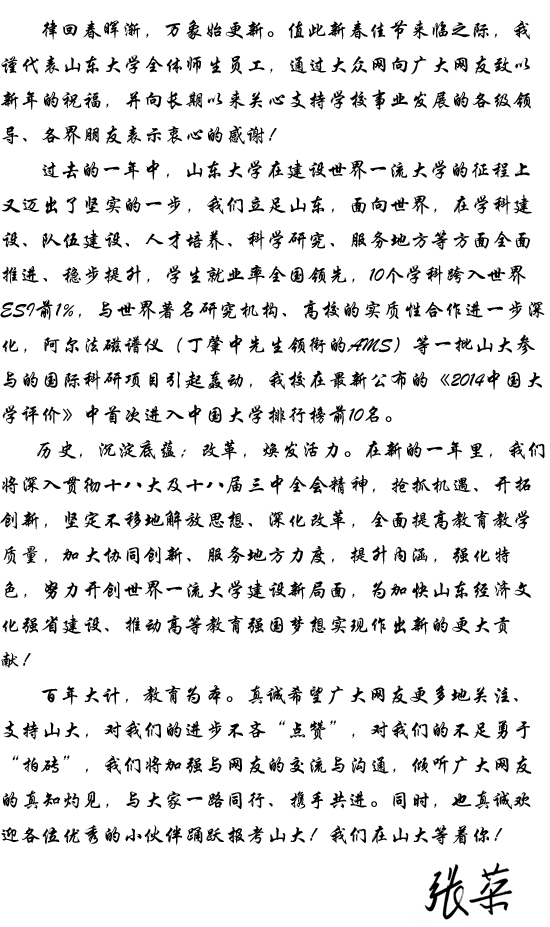 律回春晖渐，万象始更新。值此新春佳节来临之际，我
谨代表山东大学全体师生员工，通过大众网向广大网友致以
新年的祝福，并向长期以来关心支持学校事业发展的各级领
导、各界朋友表示衷心的感谢！
过去的一年中，山东大学在建设世界一流大学的征程上
又迈出了坚实的一步，我们立足山东，面向世界，在学科建
设、队伍建设、人才培养、科学研究、服务地方等方面全面
推进、稳步提升，学生就业率全国领先，10个学科跨入世界
ESI前1%，与世界著名研究机构、高校的实质性合作进一步深
化，阿尔法磁谱仪（丁肇中先生领衔的AMS）等一批山大参
与的国际科研项目引起轰动，我校在最新公布的《2014中国大
学评价》中首次进入中国大学排行榜前10名。
历史，沉淀底蕴；改革，焕发活力。在新的一年里，我们
将深入贯彻十八大及十八届三中全会精神，抢抓机遇、开拓
创新，坚定不移地解放思想、深化改革，全面提高教育教学
质量，加大协同创新、服务地方力度，提升内涵，强化特
色，努力开创世界一流大学建设新局面，为加快山东经济文
化强省建设、推动高等教育强国梦想实现作出新的更大贡
献！
百年大计，教育为本。真诚希望广大网友更多地关注、
支持山大，对我们的进步不吝“点赞”，对我们的不足勇于
“拍砖”，我们将加强与网友的交流与沟通，倾听广大网友
的真知灼见，与大家一路同行、携手共进。同时，也真诚欢
迎各位优秀的小伙伴踊跃报考山大！我们在山大等着你！
张荣